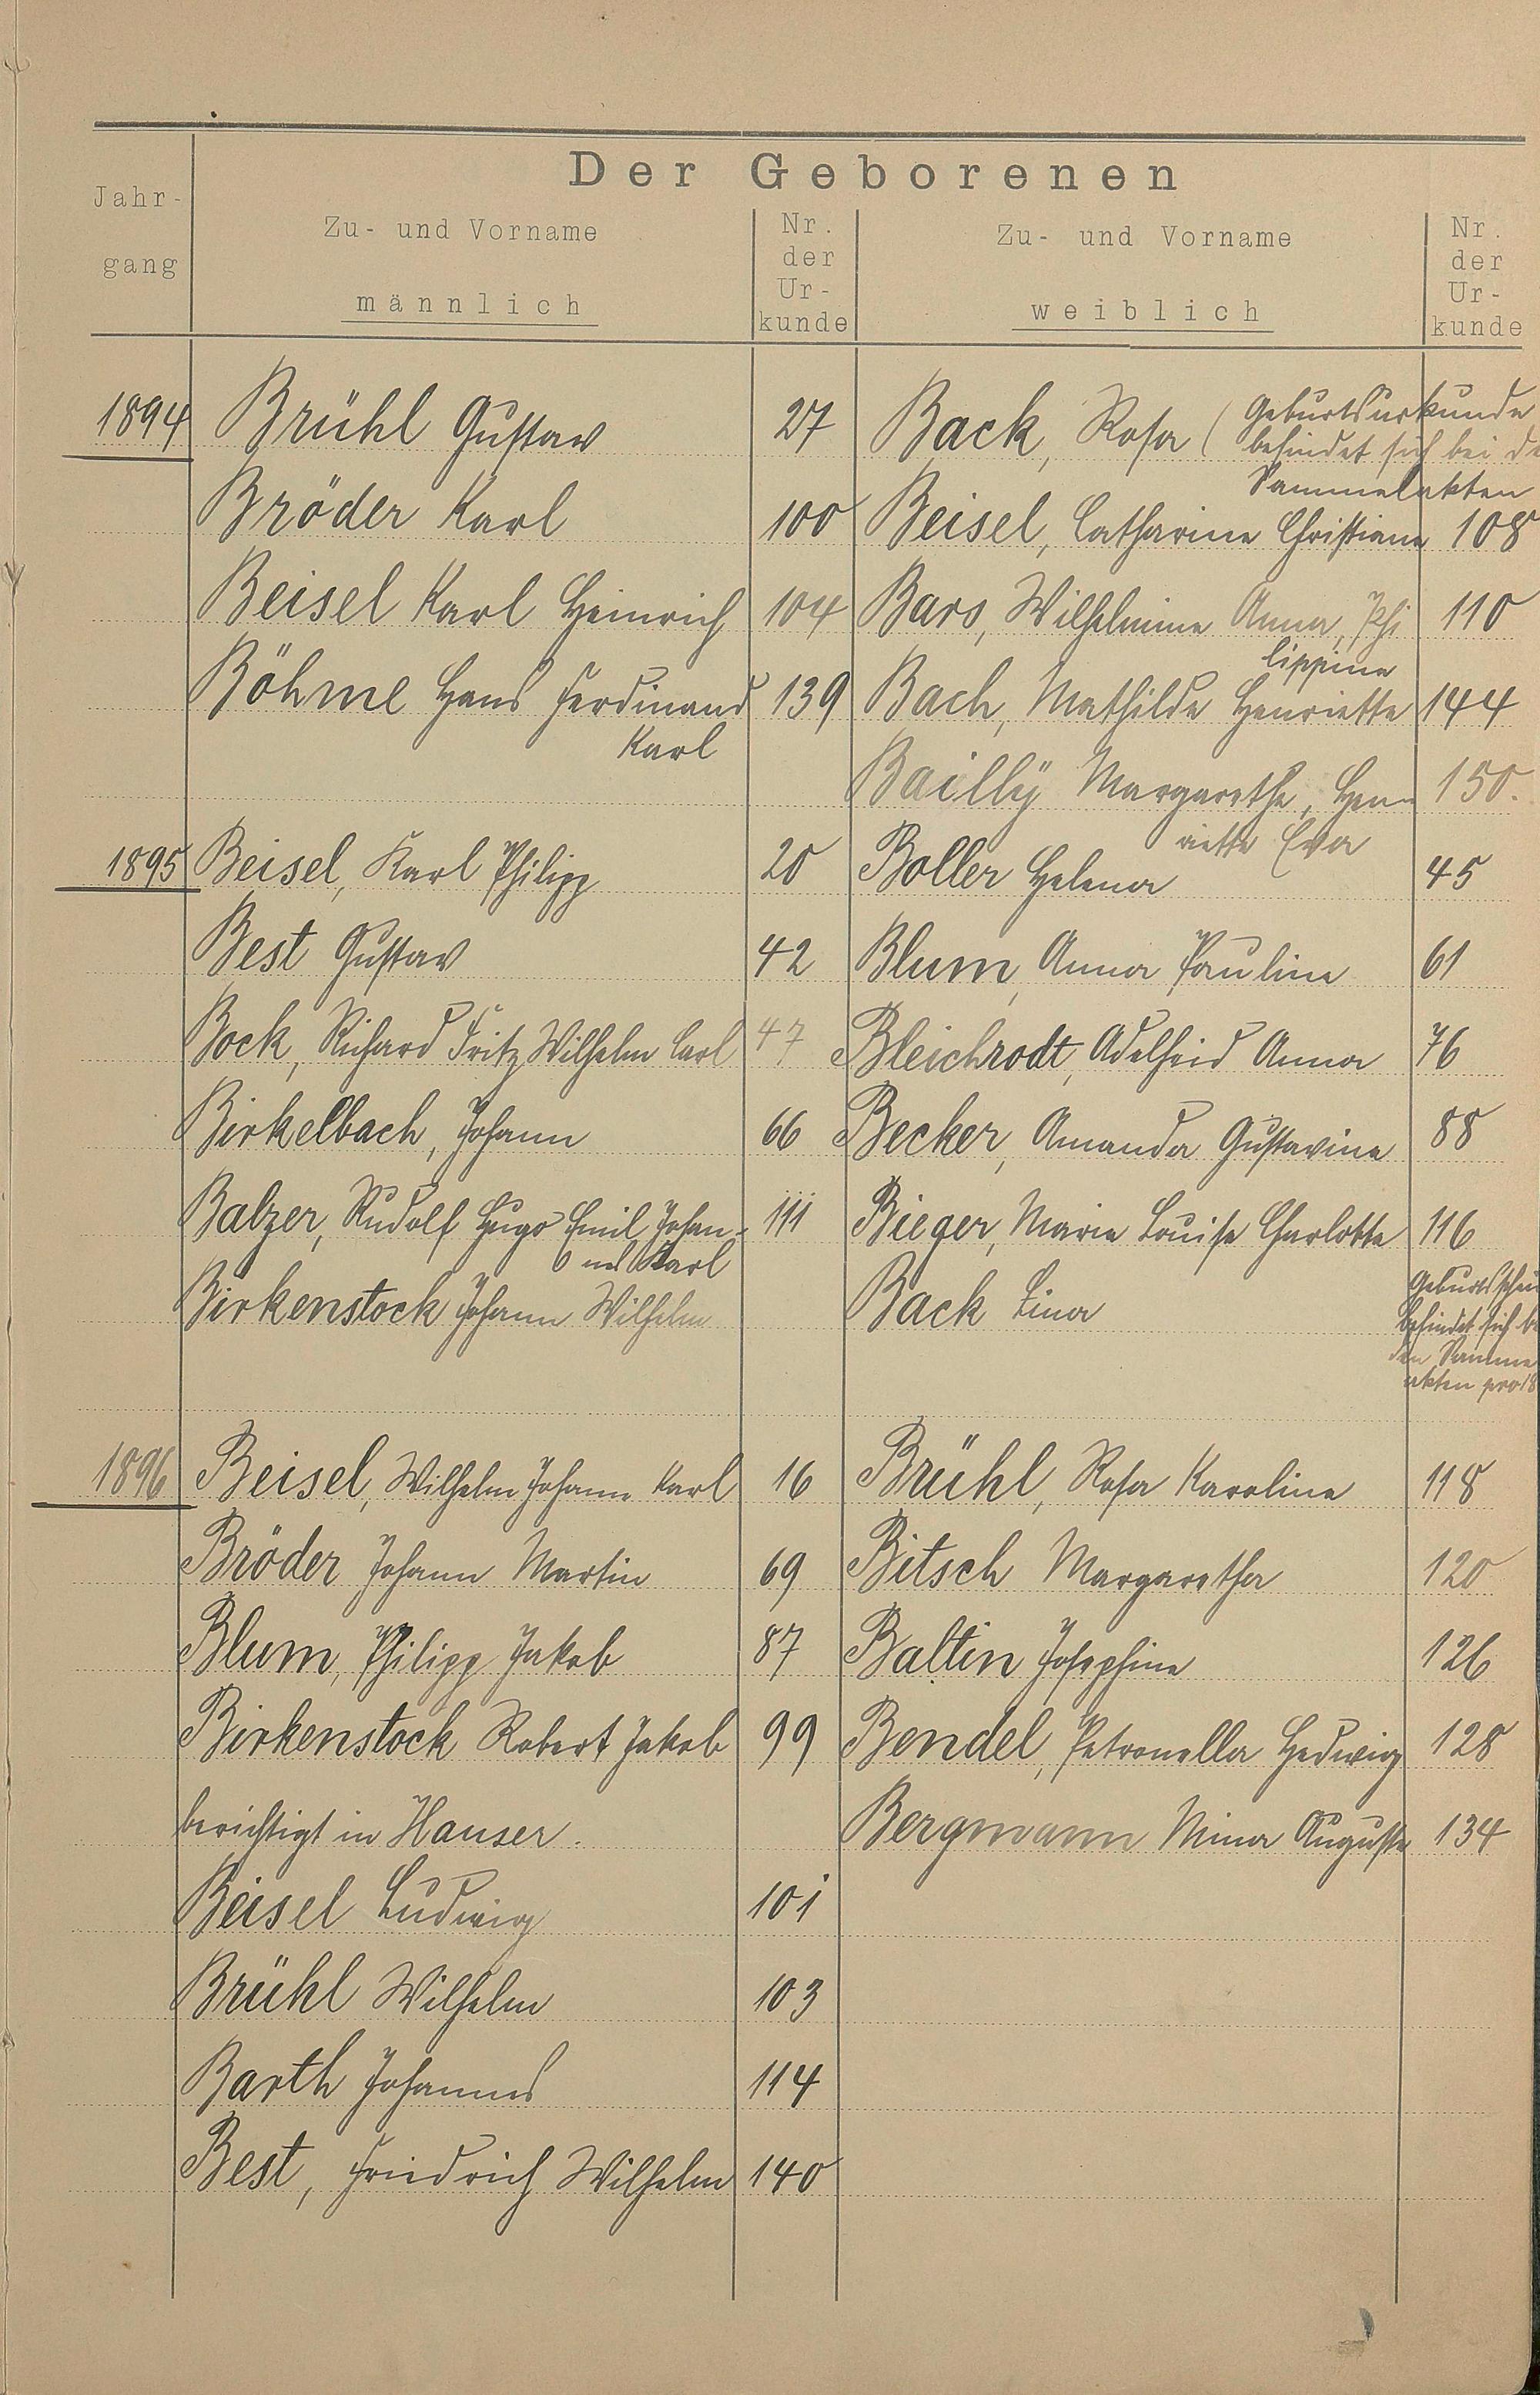 Der Geborenen
Jahr-
gang
Zu- und Vorname
männlich
Nr.
der
Ur-
kunde
Zu- und Vorname
weiblich
Nr.
der
Ur-
kunde
1894 Brühl Gustav 27 Back, Rosa ( Geburtsurkunde
befindet sich bei de
Sammelakten
Bröder Karl 100 Beisel, Catharine Christiane 108
Beisel Karl Heinrich 104 Bars, Wilhelmine Anna, Phi 110
lippine
Böhme Hans Ferdinand 139 Bach, Mathilde Henriette 144
Karl
Bailly Margarethe, Hen- 150.
riette Eva
1895 Beisel, Karl Philipp 20 Boller Helena 45
Best Gustav 42 Blum, Anna Pauline 61
Bock, Richard Fritz Wilhelm Carl 47 Bleichrodt, Adelheid Anna 76
Birkelbach, Johann 66 Becker, Amanda Gustavine 88
Balzer, Rudolf Hugo Emil Johan- 111 Bieger, Marie Louise Charlotte 116
nes Karl
Birkenstock Johann Wilhelm Back Lina Geburtsschei
befindet sich be
den Samme
akten pro 18
1896 Beisel, Wilhelm Johann Karl 16 Brühl, Rosa Karoline 118
Bröder Johann Martin 69 Bitsch Margaretha 120
Blum, Philipp Jakob 87 Baltin Josephine 126
Birkenstock Robert Jakob 99 Bendel, Petronella Hedwig 128
berichtigt in Hauser. Bergmann Mina Auguste 134
Beisel Ludwig 101
Brühl Wilhelm 103
Barth Johannes 114
Best, Friedrich Wilhelm 140